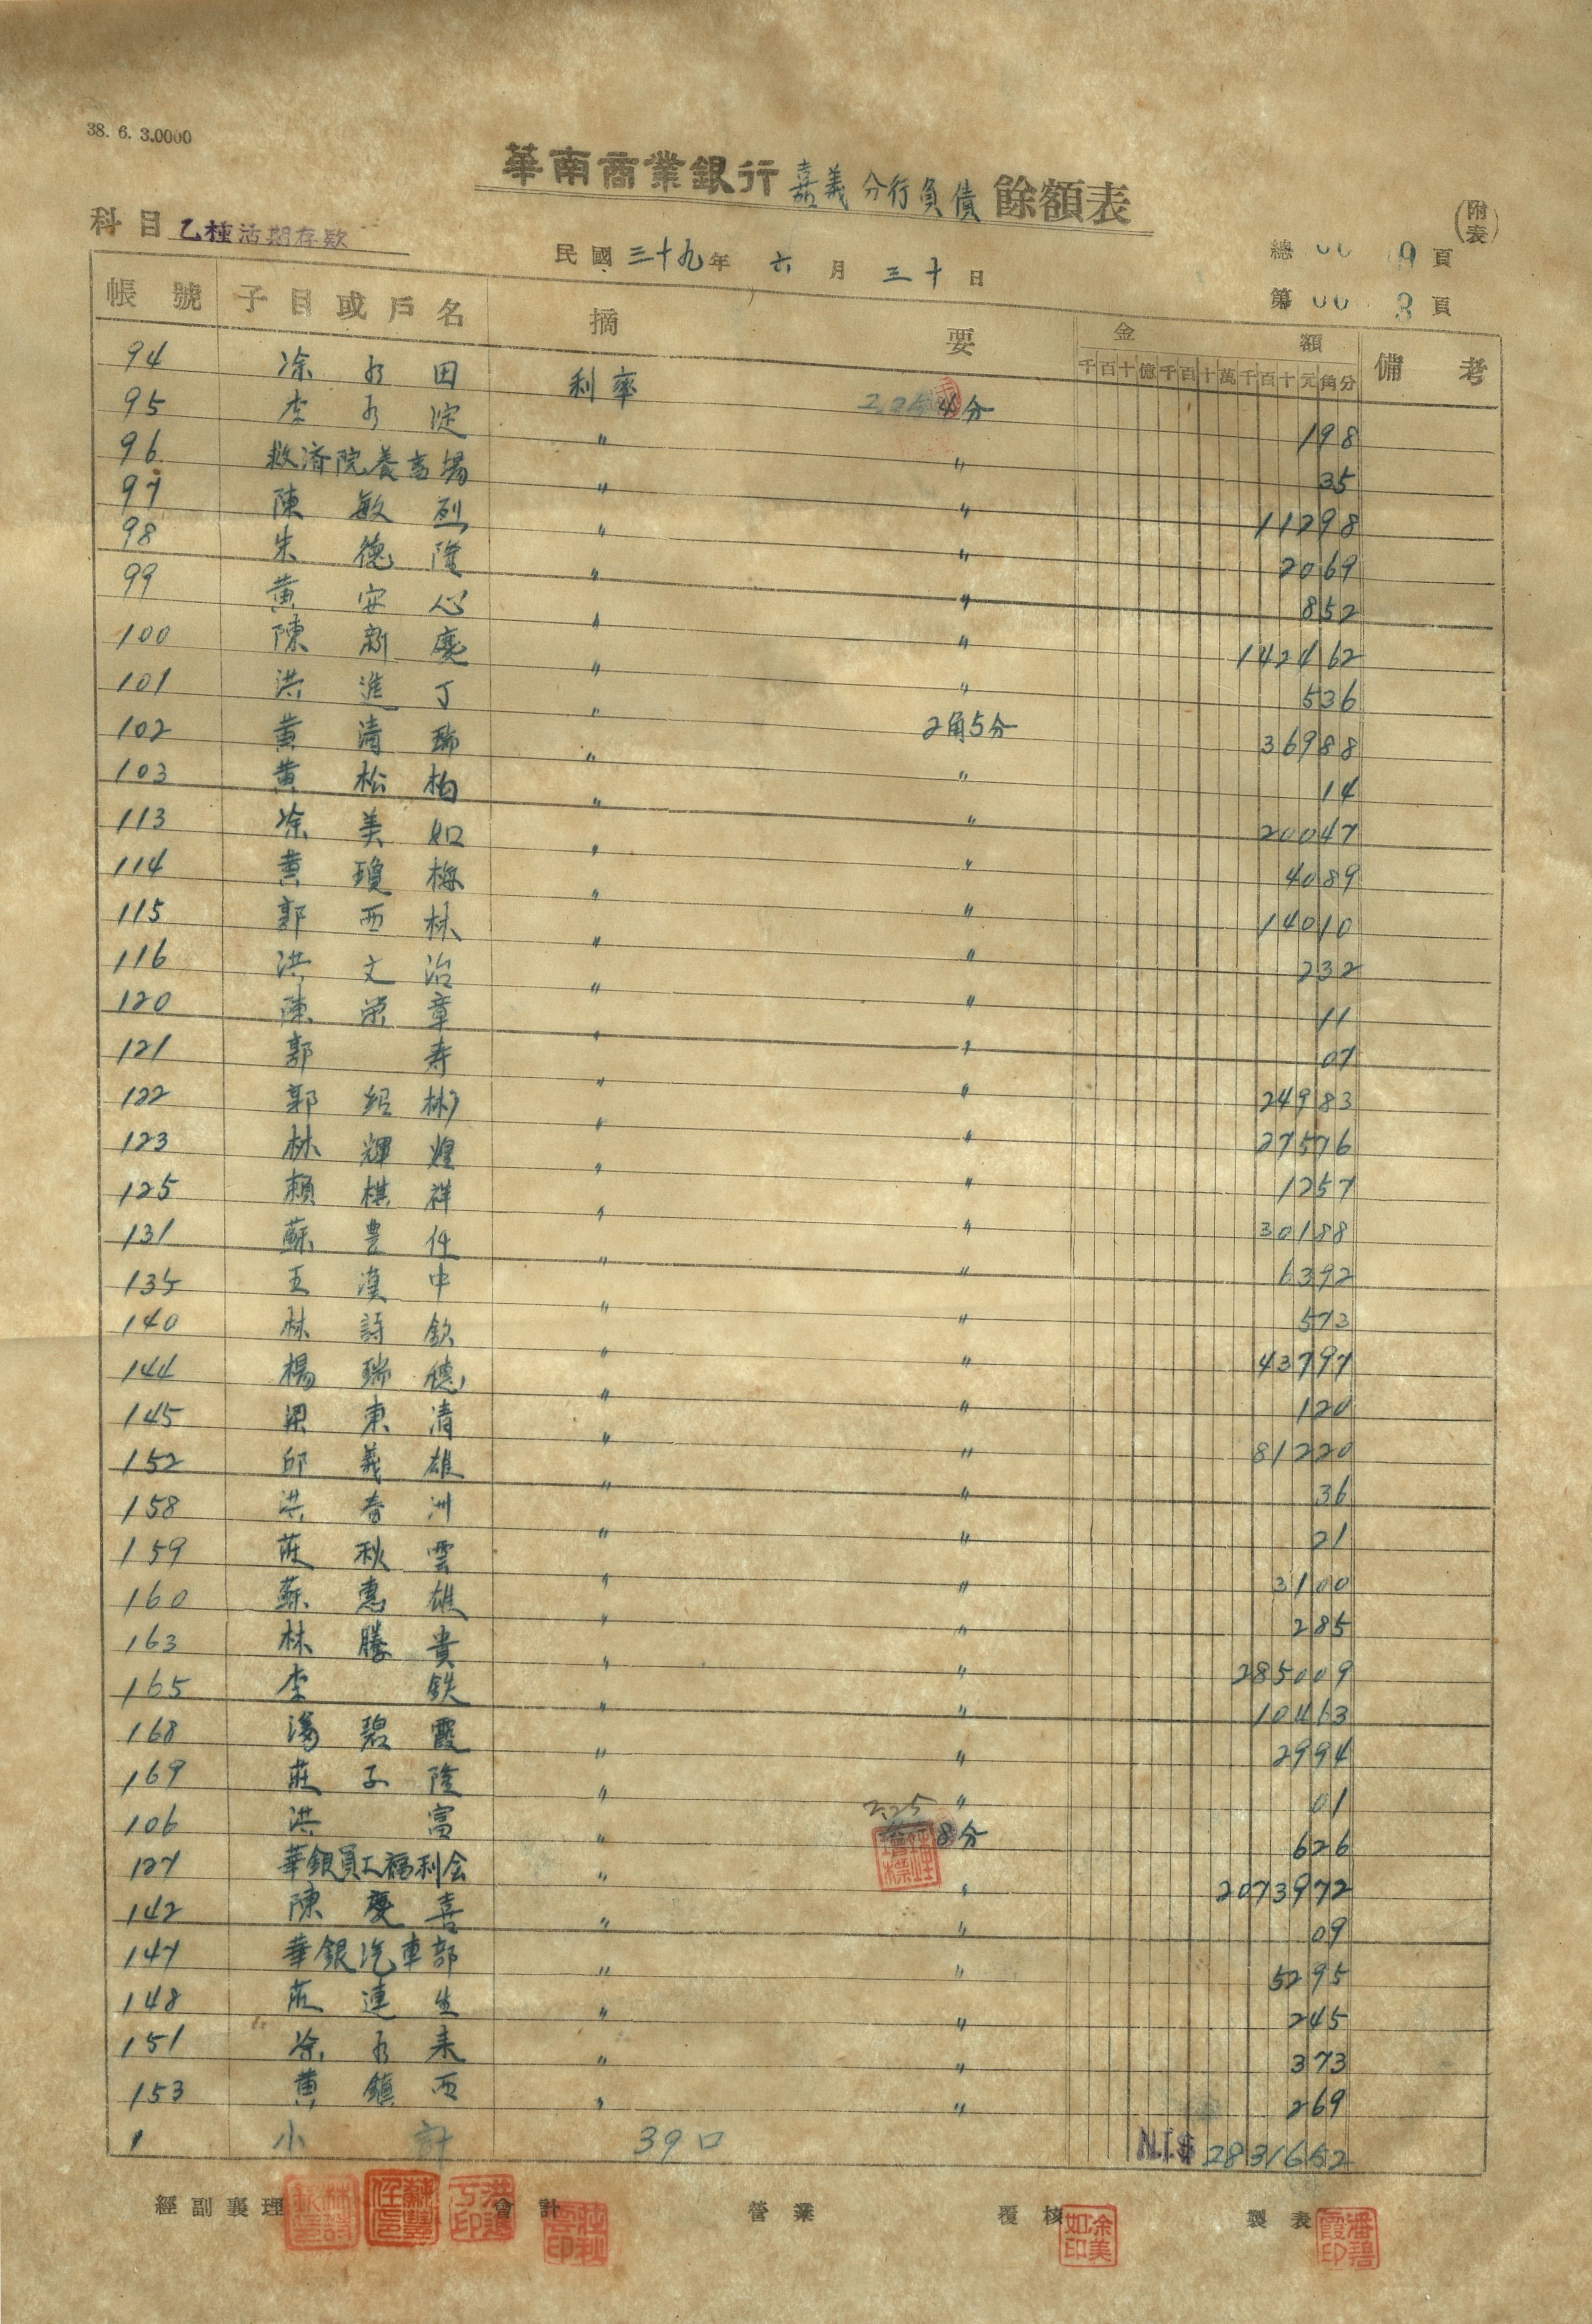 38. 6. 3.0000
華南商業銀行 嘉義 分行負債 餘額表
(附表)
科目 乙種活期存款
民國 三十九 年 六 月 三十 日
總 00 9 頁
第 00 3 頁
帳號 子目或戶名 摘要 金額 備考
千百十億千百十萬千百十元角分
94 涂水田 利率 4分 198
95 李水淀 〃 〃 35
96 救済院養畜場 〃 〃 11298
97 陳敏烈 〃 〃 2069
98 朱德隆 〃 〃 852
99 黄安心 〃 〃 142462
100 陳新慶 〃 〃 536
101 洪進丁 〃 2角5分 36988
102 黄清瑞 〃 〃 14
103 黄松柏 〃 〃 20047
113 涂美如 〃 〃 4089
114 黄瓊梅 〃 〃 14010
115 郭西林 〃 〃 232
116 洪文治 〃 〃 11
120 陳榮章 〃 〃 07
121 郭寿 〃 〃 24983
122 郭紹彬 〃 〃 27576
123 林輝煌 〃 〃 1257
125 賴棋祥 〃 〃 30188
131 蘇豊任 〃 〃 6392
135 王漢中 〃 〃 573
140 林詩欽 〃 〃 43797
144 楊瑞德 〃 〃 120
145 梁東清 〃 〃 81220
152 邱義雄 〃 〃 36
158 洪春洲 〃 〃 21
159 莊秋雲 〃 〃 3100
160 蘇惠雄 〃 〃 285
163 林勝貴 〃 〃 285009
165 李鉄 〃 〃 10463
168 潘碧霞 〃 〃 2994
169 莊子隆 〃 〃 01
106 洪富 〃 2.25 8分 626
127 華銀員工福利会 〃 〃 2073972
142 陳慶喜 〃 〃 09
147 華銀汽車部 〃 〃 5295
148 莊連生 〃 〃 245
151 涂水来 〃 〃 373
153 黄鎮西 〃 〃 269
1 小計 39口 N.T.$ 2831652
經副襄理 會計 營業 覆核 製表
林詩欽印 蘇豐任印 洪進丁印 莊秋雲印 涂美如印 潘碧霞印